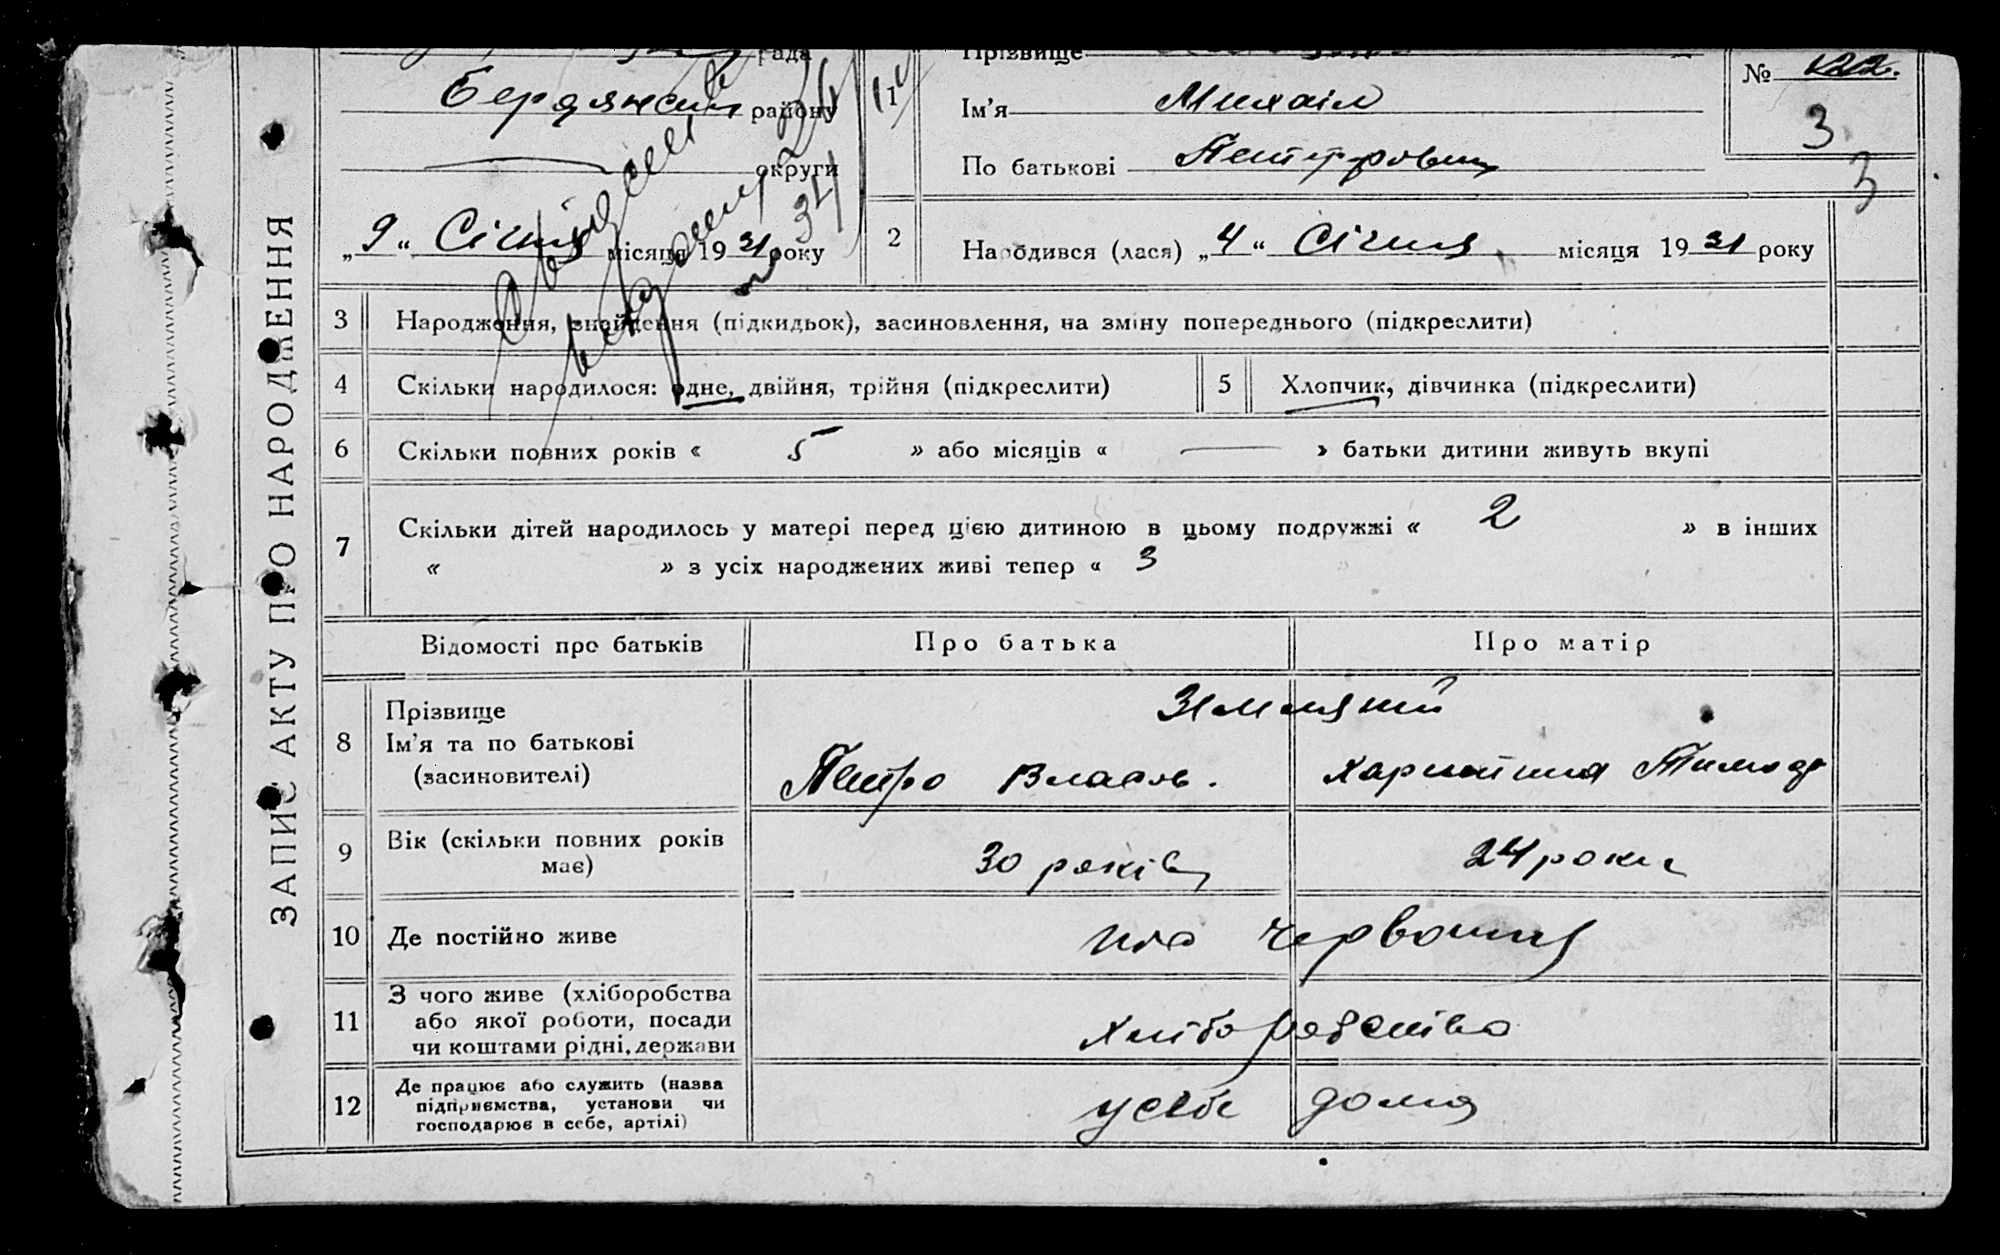 ЗАПИС АКТУ ПРО НАРОДЖЕННЯ
рада
Бердянськ району
округи
„9“ Січня місяця 1931 року
1
Прізвище
Ім'я Михаіл
По батькові Петррович
№ 122.
3
3
2 Народився (лася) „4“ Січня місяця 1931 року
3 Народження, знайдення (підкидьок), засиновлення, на зміну попереднього (підкреслити)
4 Скільки народилося: одне, двійня, трійня (підкреслити)
5 Хлопчик, дівчинка (підкреслити)
6 Скільки повних років « 5 » або місяців « — » батьки дитини живуть вкупі
7 Скільки дітей народилось у матері перед цією дитиною в цьому подружжі « 2 » в інших
« » з усіх народжених живі тепер « 3
Відомості про батьків Про батька Про матір
8 Прізвище
Ім'я та по батькові
(засиновителі)
Земляний
Петро Власов. Харитина Тимоф
9 Вік (скільки повних років
має)
30 років 24 роки
10 Де постійно живе
Червония
11 З чого живе (хліборобства
або якої роботи, посади
чи коштами рідні, держави
хліборобство
12 Де працює або служить (назва
підприємства, установи чи
господарює в себе, артілі)
у себе дома